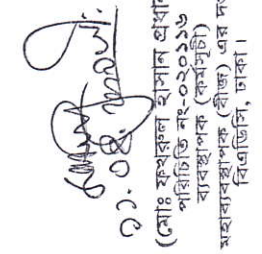 (মোঃ ফখরুল হাসান প্রধান
পরিচিতি নং-০২০১১৬
ব্যবস্থাপক (কর্মসূচী)
মহাব্যবস্থাপক (বীজ) এর দপ
বিএডিসি, ঢাকা।